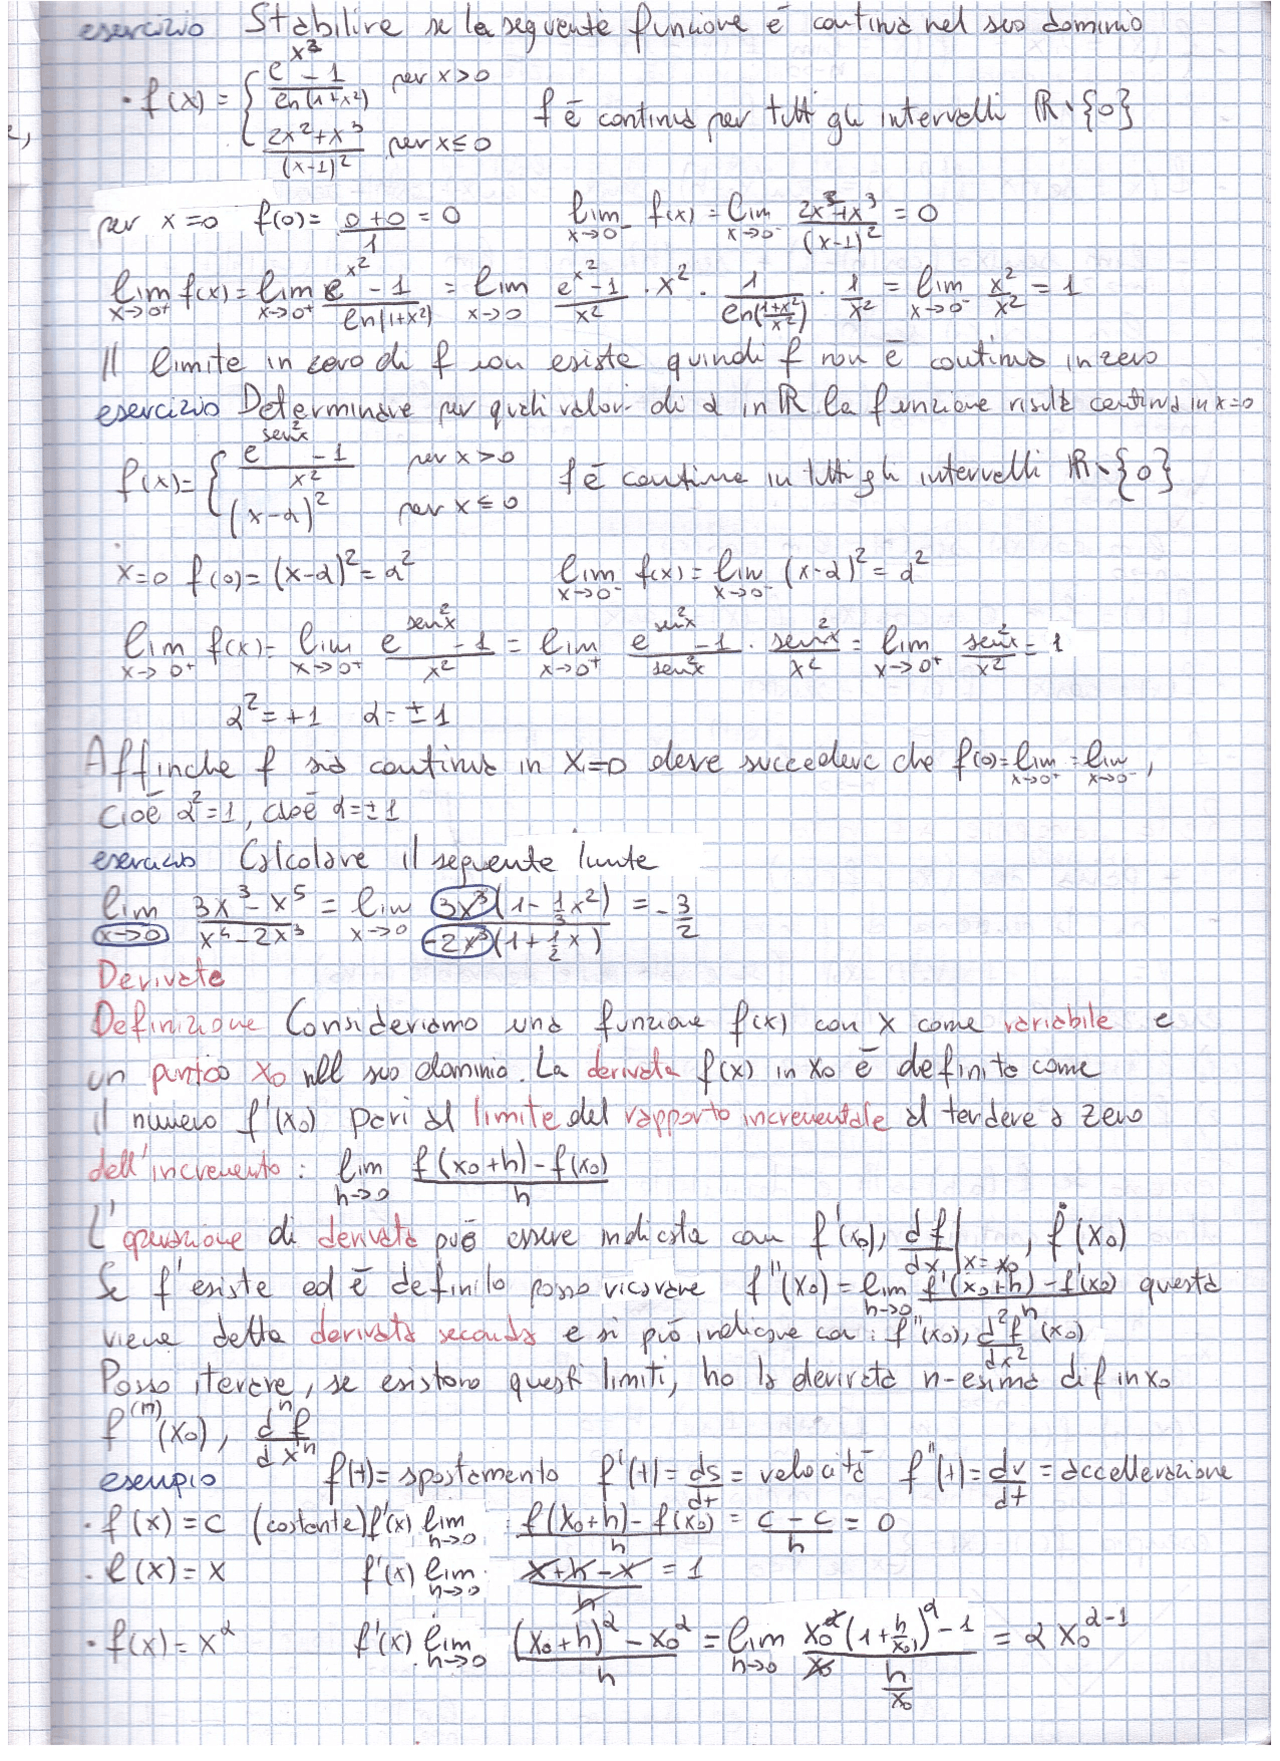 esercizio Stabilire se la seguente funzione è continua nel suo dominio
• f(x) = { (e^{x²} - 1)/(ln(1+x²)) per x>0
(2x²+x³)/((x-1)²) per x≤0 f è continua per tutti gli intervalli ℝ∖{0}
per x=0 f(0) = (0+0)/1 = 0 lim_{x→0⁻} f(x) = lim_{x→0⁻} (2x²+x³)/((x-1)²) = 0
lim_{x→0⁺} f(x) = lim_{x→0⁺} (e^{x²} - 1)/(ln(1+x²)) = lim_{x→0} (e^{x²}-1)/x² · x² · 1/(ln((1+x²)/x²)) · 1/x² = lim_{x→0⁻} x²/x² = 1
Il limite in zero di f non esiste quindi f non è continua in zero
esercizio Determinare per quali valori di α in ℝ la funzione risulta continua in x=0
f(x) = { (e^{sen²x} - 1)/x² per x>0
(x-α)² per x≤0 f è continua in tutti gli intervalli ℝ∖{0}
x=0 f(0) = (x-α)² = α² lim_{x→0⁻} f(x) = lim_{x→0⁻} (x-α)² = α²
lim_{x→0⁺} f(x) = lim_{x→0⁺} (e^{sen²x} - 1)/x² = lim_{x→0⁺} (e^{sen²x} - 1)/sen²x · sen²x/x² = lim_{x→0⁺} sen²x/x² = 1
α² = +1 α = ±1
Affinche f sia continua in x=0 deve succedere che f(0) = lim_{x→0⁺} = lim_{x→0⁻},
cioè α²=1, cioè α=±1
esercizio Calcolare il seguente limite
lim_{x→0} (3x³ - x⁵)/(x⁴ - 2x³) = lim_{x→0} (3x³(1 - 1/3 x²))/(-2x³(1 + 1/2 x)) = -3/2
Derivate
Definizione Consideriamo una funzione f(x) con x come variabile e
un punto x₀ nel suo dominio. La derivata f(x) in x₀ è definita come
il numero f'(x₀) pari al limite del rapporto incrementale al tendere a zero
dell'incremento: lim_{h→0} (f(x₀+h) - f(x₀))/h
L'operazione di derivata può essere indicata con f'(x₀), df/dx|_{x=x₀}, ḟ(x₀)
Se f' esiste ed è definito posso ricavare f''(x₀) = lim_{h→0} (f'(x₀+h) - f'(x₀))/h questa
viene detta derivata seconda e si può indicare con: f''(x₀), d²f/dx² (x₀)
Posso iterare, se esistono questi limiti, ho la derivata n-esima di f in x₀
f^{(n)}(x₀), dⁿf/dxⁿ
esempio f(t) = spostamento f'(t) = ds/dt = velocità f''(t) = dv/dt = accellerazione
• f(x) = c (costante) f'(x) lim_{h→0} (f(x₀+h) - f(x₀))/h = (c - c)/h = 0
• f(x) = x f'(x) lim_{h→0} (x+h-x)/h = 1
• f(x) = x^α f'(x) lim_{h→0} ((x₀+h)^α - x₀^α)/h = lim_{h→0} x₀^α/x₀ ((1+h/x₀)^α - 1)/(h/x₀) = α x₀^{α-1}